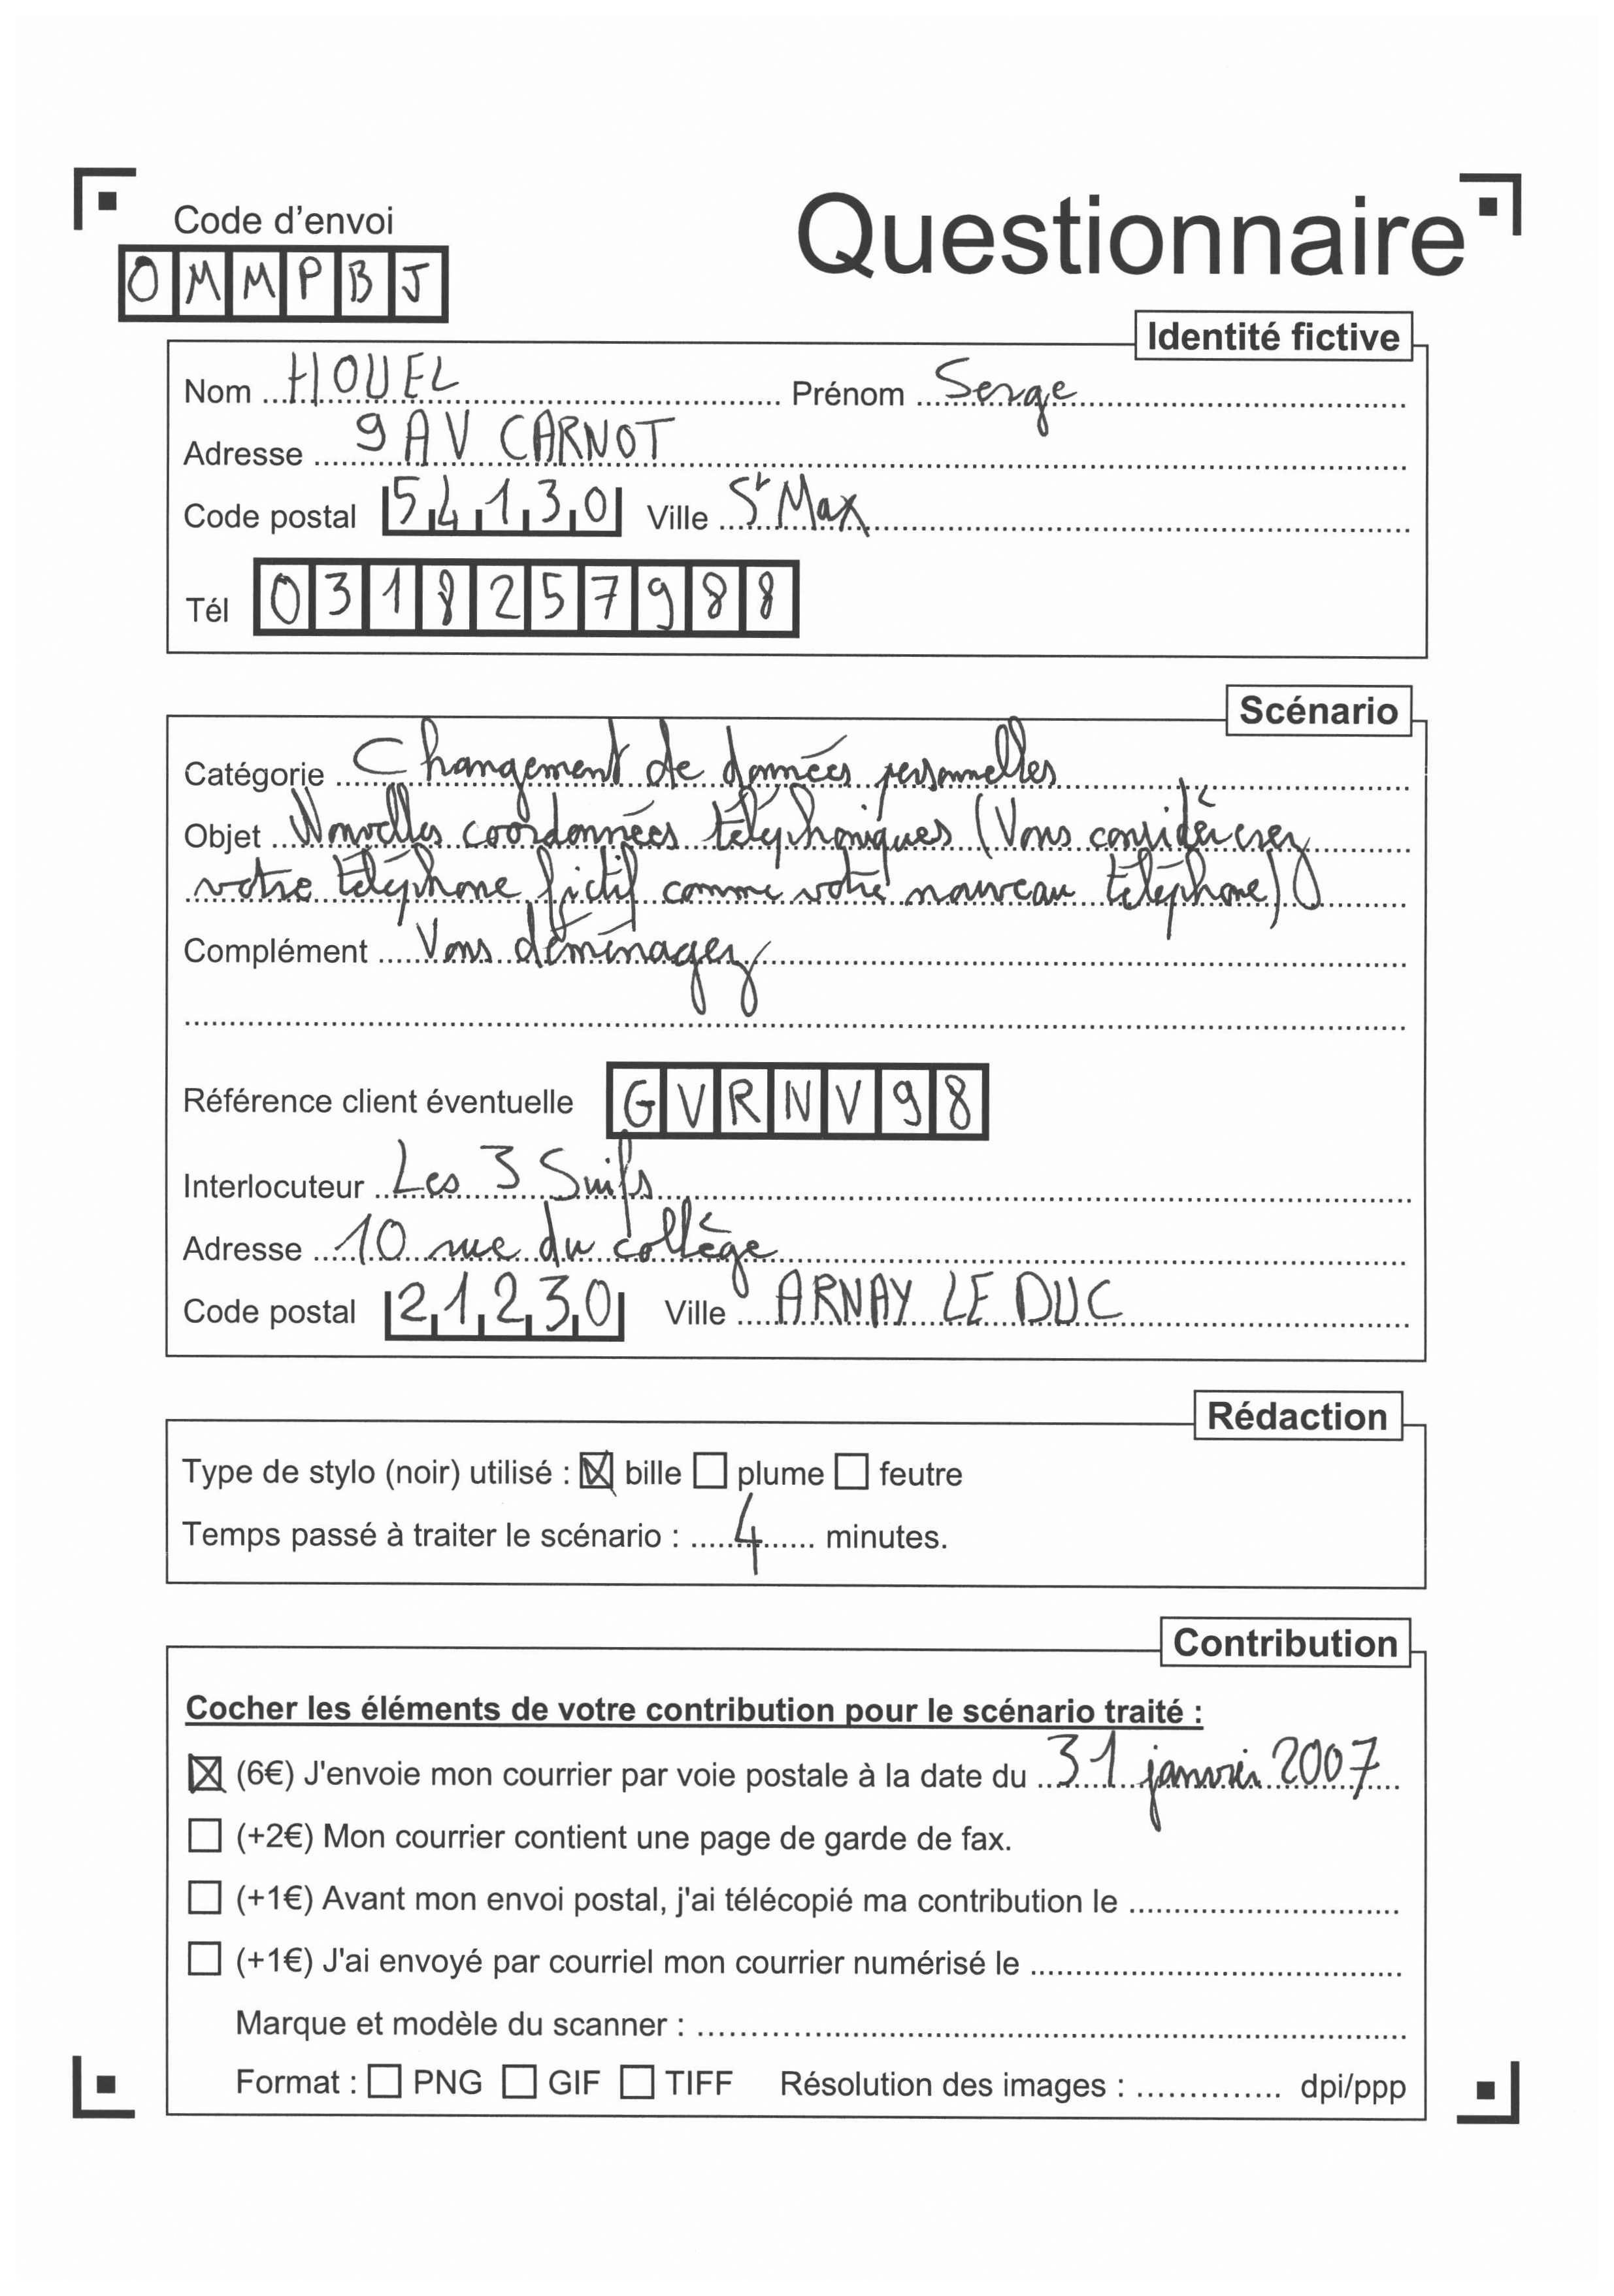 Code d'envoi
Questionnaire
OMMPBJ
Identité fictive
Nom HOUEL Prénom Serge
Adresse 9 AV CARNOT
Code postal 54130 Ville St Max
Tél 0318257988
Scénario
Catégorie Changement de données personnelles
Objet Nouvelles coordonnées téléphoniques (Vous considèrerez
votre téléphone fictif comme votre nouveau téléphone)
Complément Vous déménagez
Référence client éventuelle GVRNV98
Interlocuteur Les 3 Suifs
Adresse 10 rue du collège
Code postal 21230 Ville ARNAY LE DUC
Rédaction
Type de stylo (noir) utilisé : ☒ bille ☐ plume ☐ feutre
Temps passé à traiter le scénario : 4 minutes.
Contribution
Cocher les éléments de votre contribution pour le scénario traité :
☒ (6€) J'envoie mon courrier par voie postale à la date du 31 janvier 2007
☐ (+2€) Mon courrier contient une page de garde de fax.
☐ (+1€) Avant mon envoi postal, j'ai télécopié ma contribution le
☐ (+1€) J'ai envoyé par courriel mon courrier numérisé le
Marque et modèle du scanner :
Format : ☐ PNG ☐ GIF ☐ TIFF Résolution des images : dpi/ppp